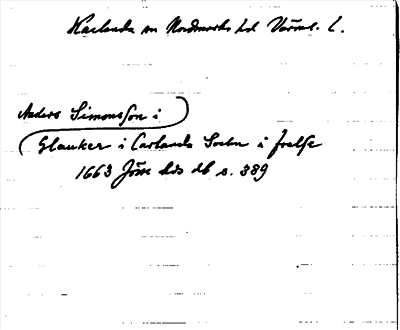 Karlanda sn Nordmarks hd Värml. l.
Anders Simonsson i
Glauker i Carlanda Sochn i frelse
1663 Jösse hds db s. 389